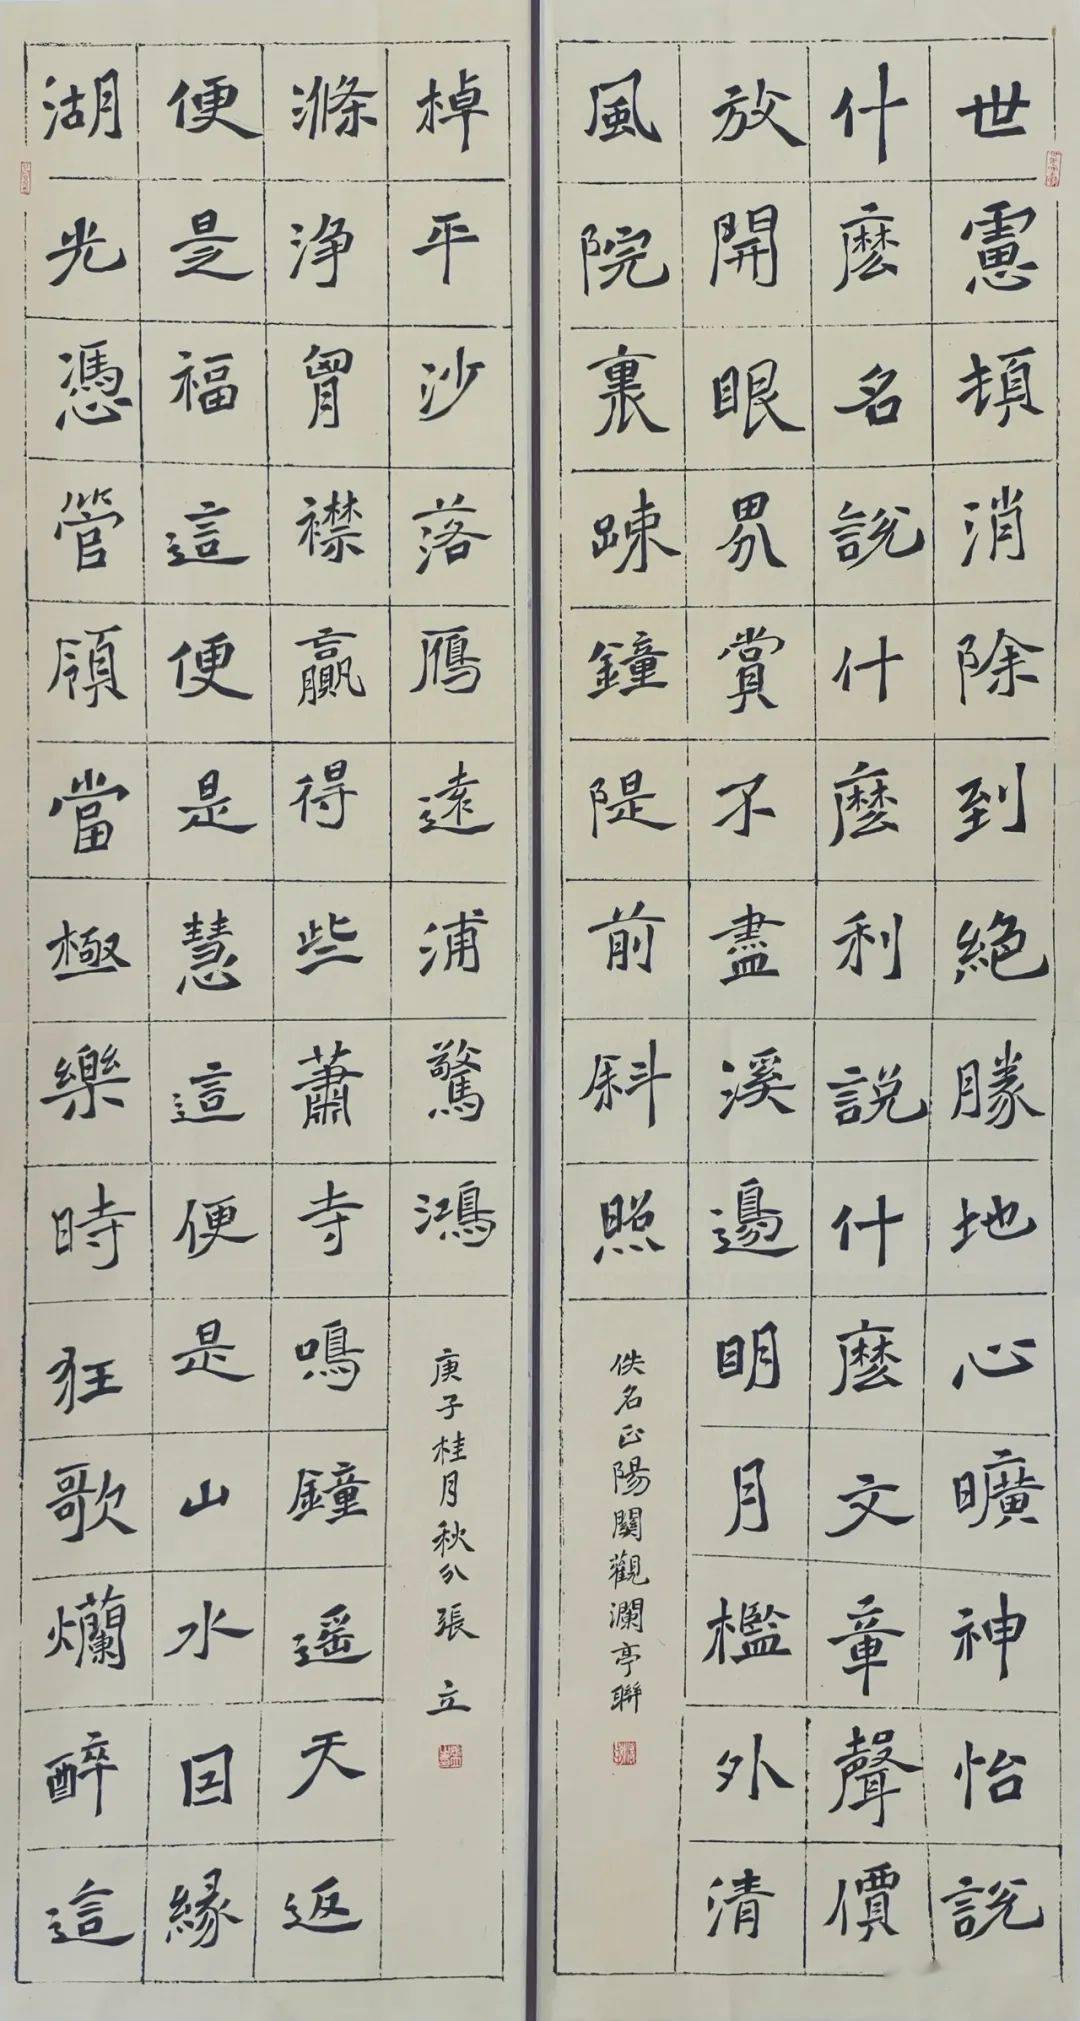 世慮頓消除到絕勝地心曠神怡說
什麼名說什麼利說什麼文章聲價
放開眼界賞不盡溪邊明月檻外清
風院裏踈鐘隄前斜照
佚名正陽關觀瀾亭聯
湖光憑管領當極樂時狂歌爛醉這
便是福這便是慧這便是山水因緣
滌淨胷襟贏得些蕭寺鳴鐘遙天返
棹平沙落鴈遠浦驚鴻
庚子桂月秋分張立